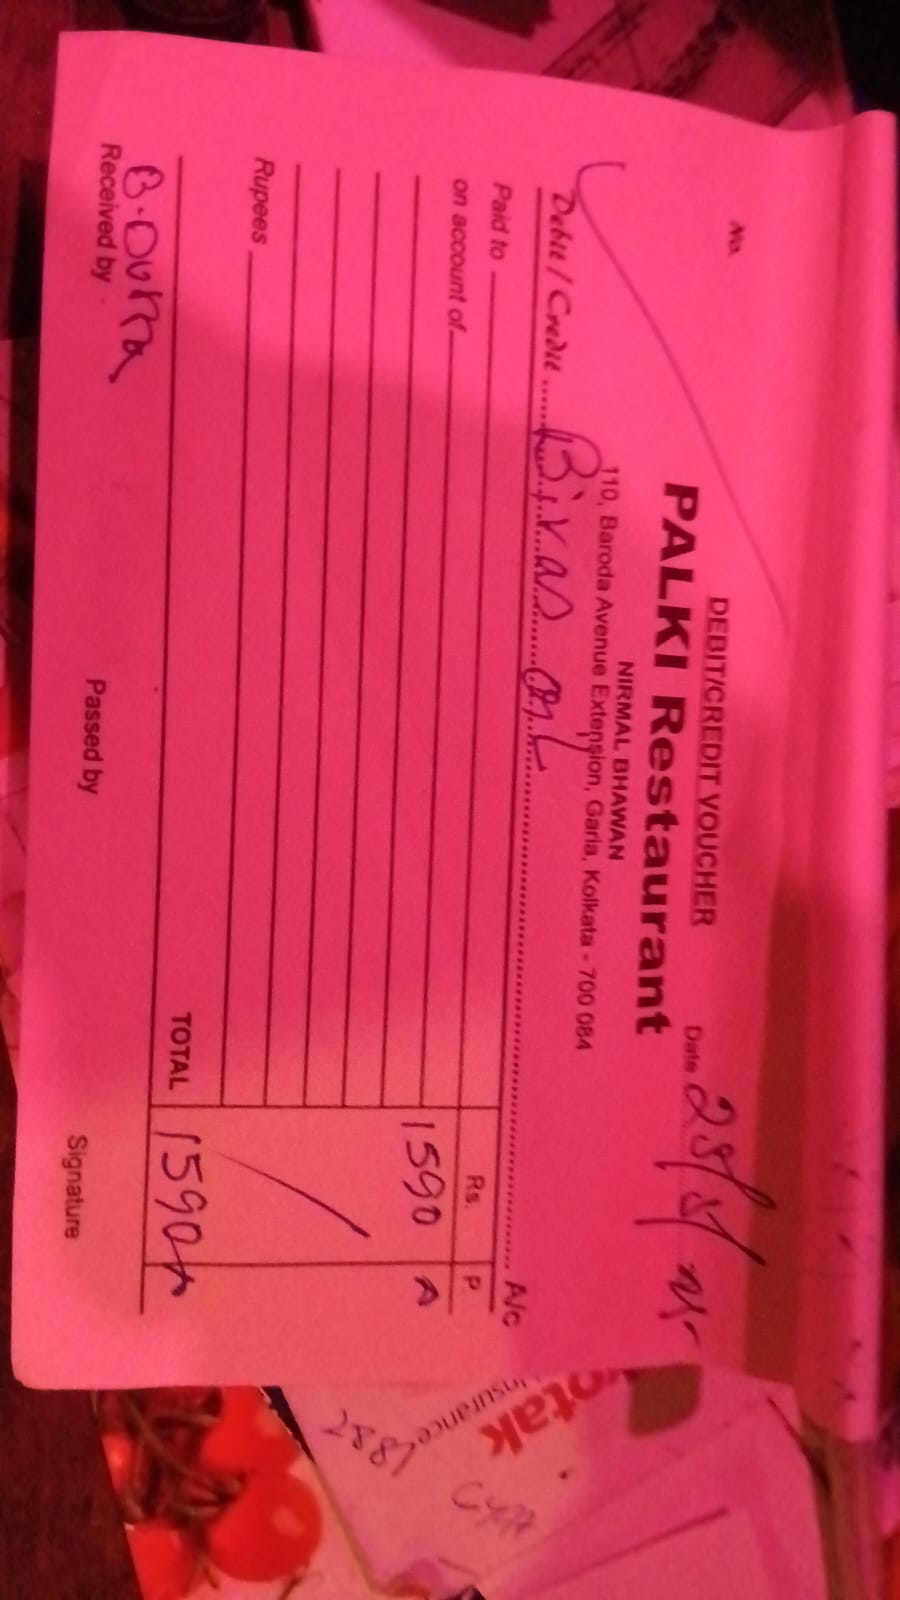 DEBIT/CREDIT VOUCHER
No. Date
PALKI Restaurant
NIRMAL BHAWAN
110, Baroda Avenue Extension, Garia, Kolkata - 700 084
Debit / Credit ...... Bivas ...... A/c
Paid to
on account of
Rs. P
1590
Rupees
TOTAL 1590
B. Dutta
Received by Passed by Signature
otak
insurance